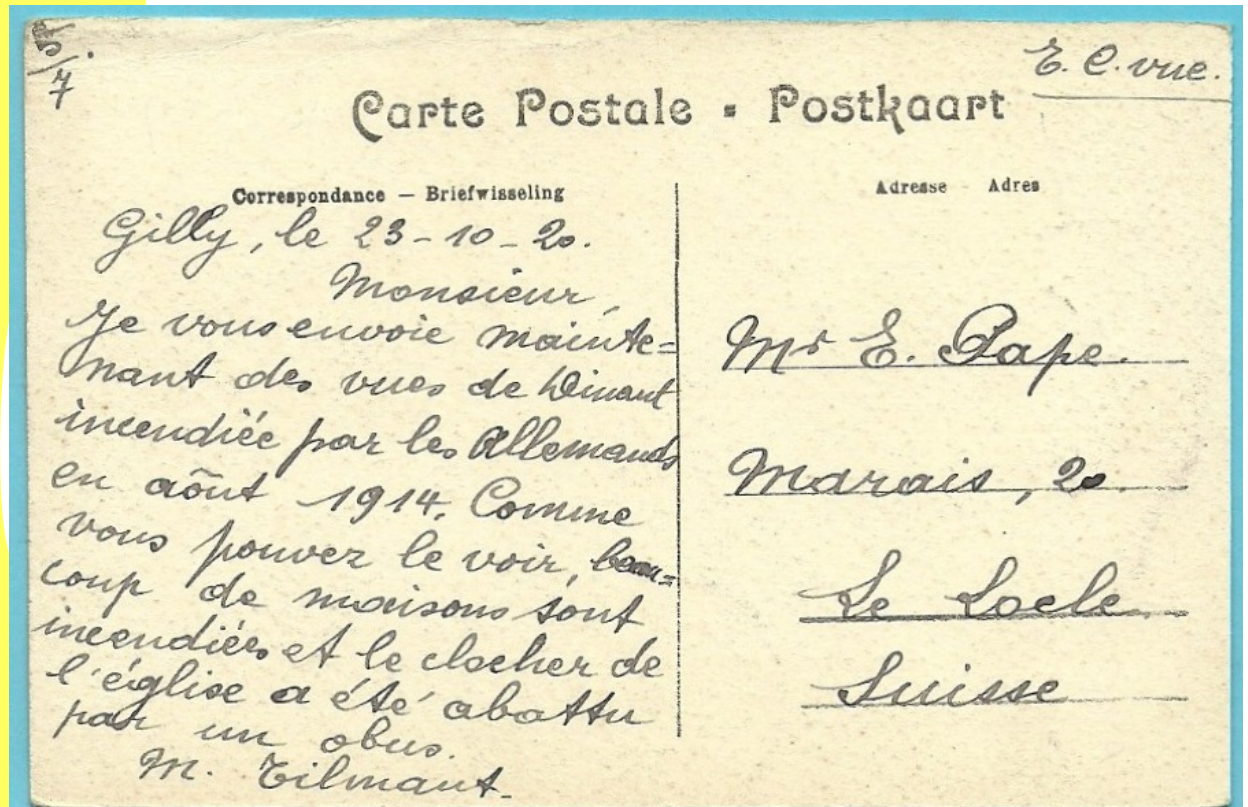 5/7
E. C. vue.
Carte Postale - Postkaart
Correspondance — Briefwisseling
Gilly, le 23-10-20.
Monsieur,
Je vous envoie mainte=
nant des vues de Dinant
incendiée par les Allemands
en aôut 1914. Comme
vous pouvez le voir, beau=
coup de maisons sont
incendiées et le clocher de
l'église a été abattu
par un obus.
M. Tilmant.
Adresse - Adres
Mr E. Pape.
Marais, 20.
Le Locle
Suisse